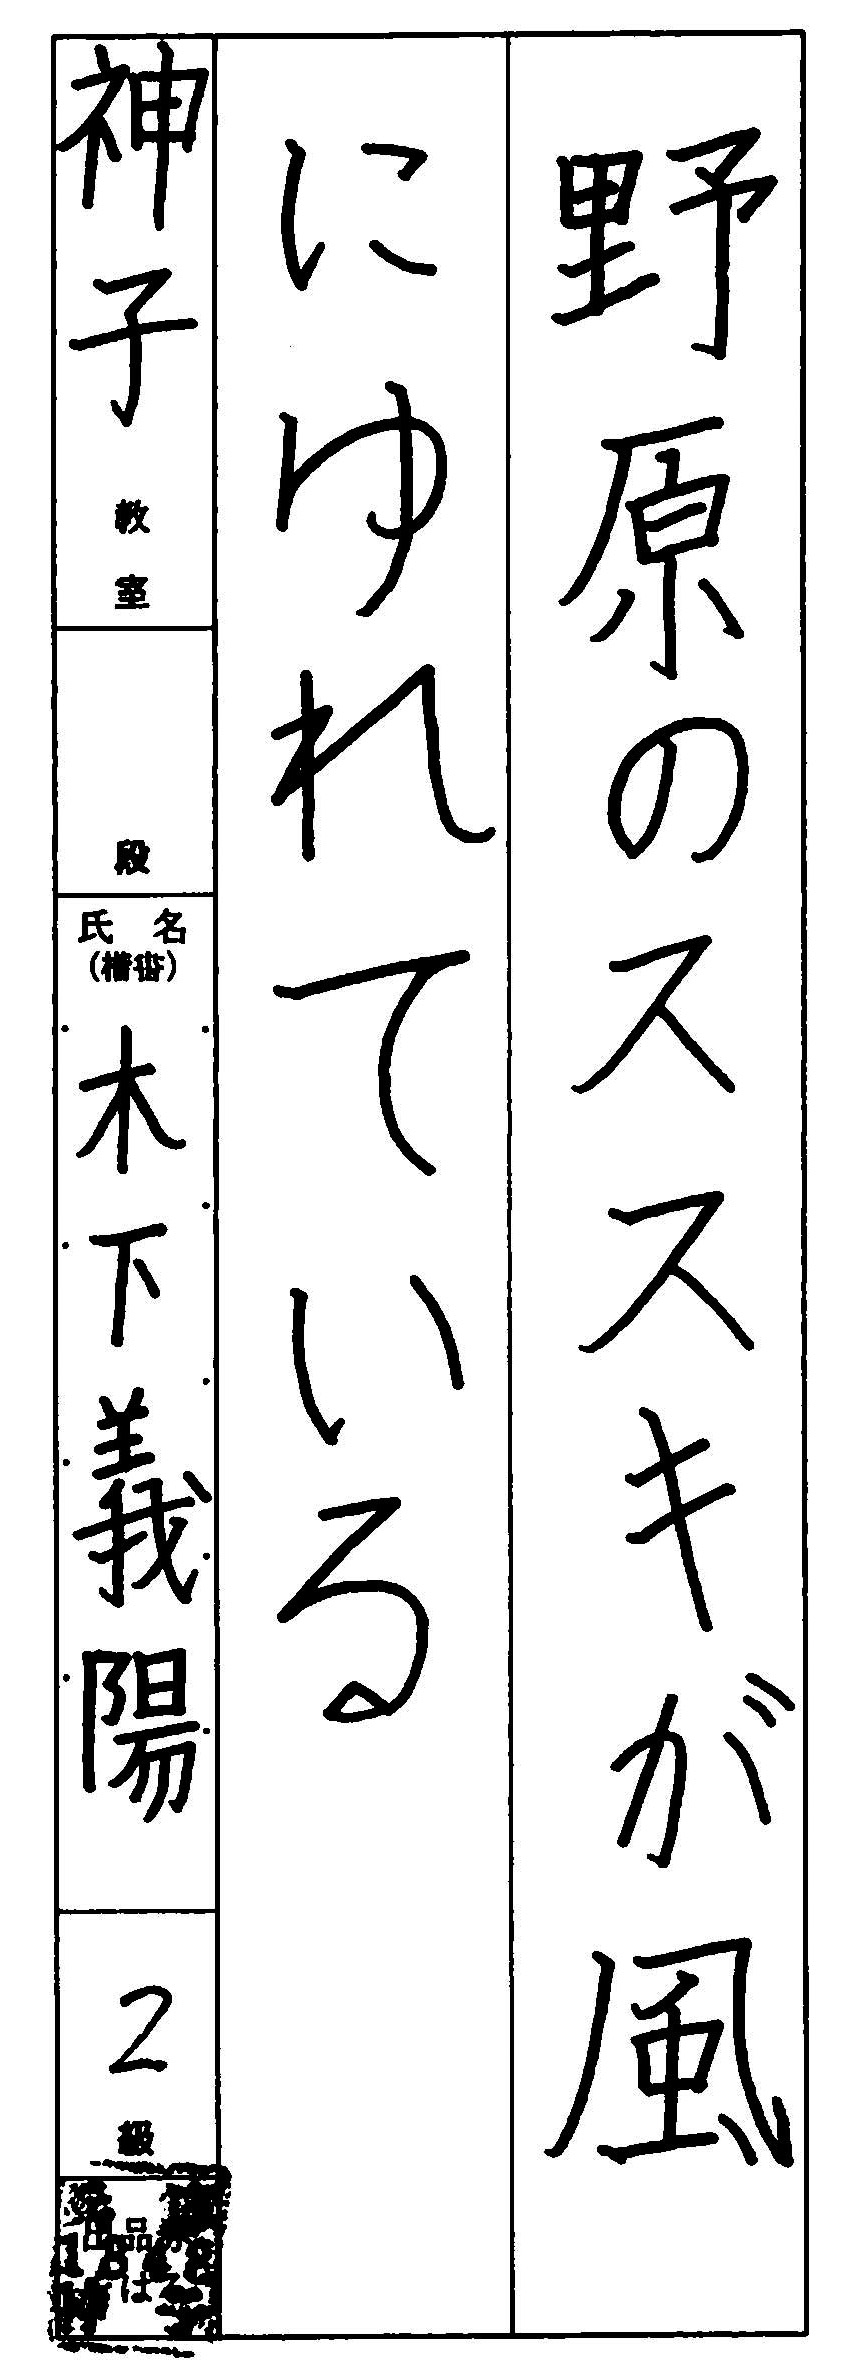 野原のススキが風
にゆれている
神子教室
段
氏名
(楷書)
木下義陽
2級